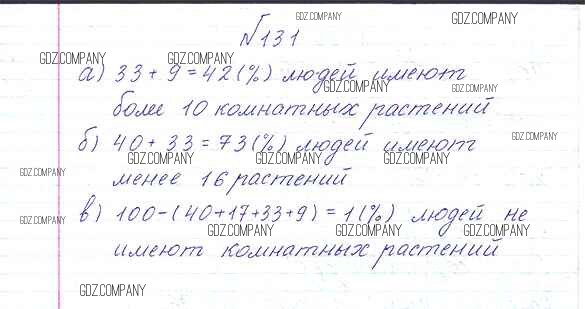 GDZ.COMPANY
GDZ.COMPANY
№131
GDZ.COMPANY
GDZ.COMPANY
а) 33 + 9 = 42 (%) людей имеют
GDZ.COMPANY
GDZ.COMPANY
более 10 комнатных растений
б) 40 + 33 = 73 (%) людей имеют
GDZ.COMPANY
GDZ.COMPANY
GDZ.COMPANY
GDZ.COMPANY
менее 16 растений
GDZ.COMPANY
в) 100-(40+17+33+9) = 1(%) людей не
GDZ.COMPANY
GDZ.COMPANY
GDZ.COMPANY
GDZ.COMPANY
имеют комнатных растений
GDZ.COMPANY